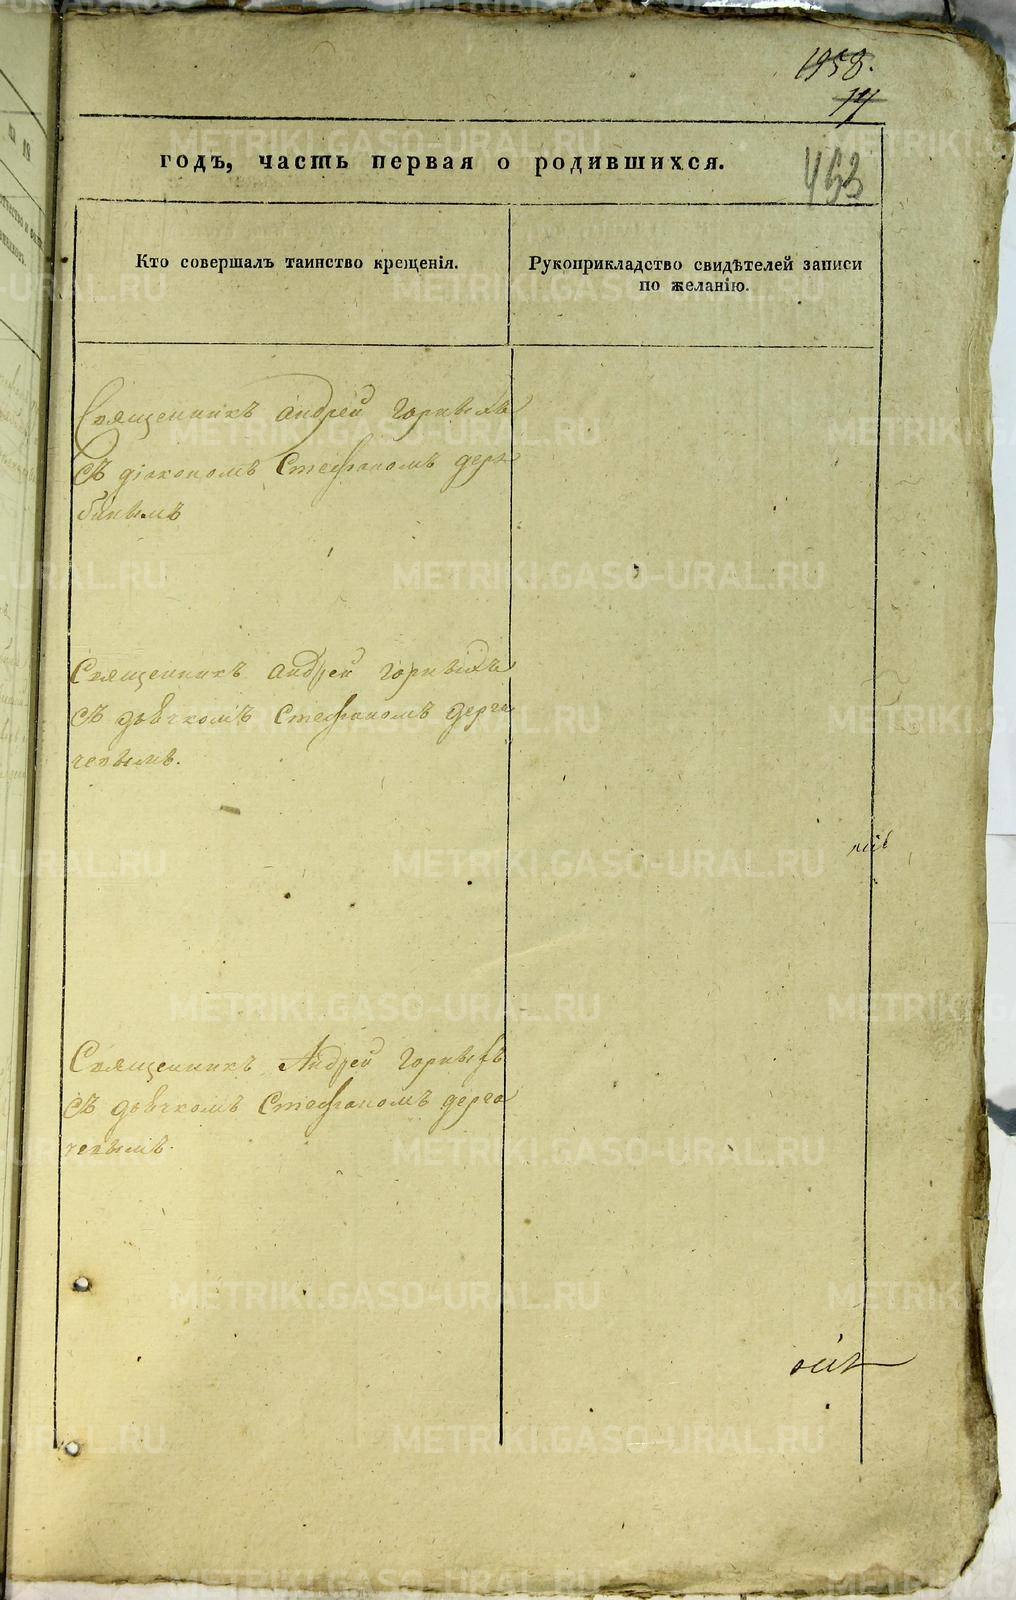 1958.
14
453
годъ, часть первая о родившихся.
Кто совершалъ таинство крещенія.
Рукоприкладство свидѣтелей записи
по желанію.
Священникъ Андрей Горныхъ
съ діакономъ Стефаномъ Дер
бинымъ
Священникъ Андрей Горныхъ
съ дьячкомъ Стефаномъ Дерга
чевымъ.
Священникъ Андрей Горныхъ
съ дьячкомъ Стефаномъ Дерга
чевымъ.
METRIKI.GASO-URAL.RU